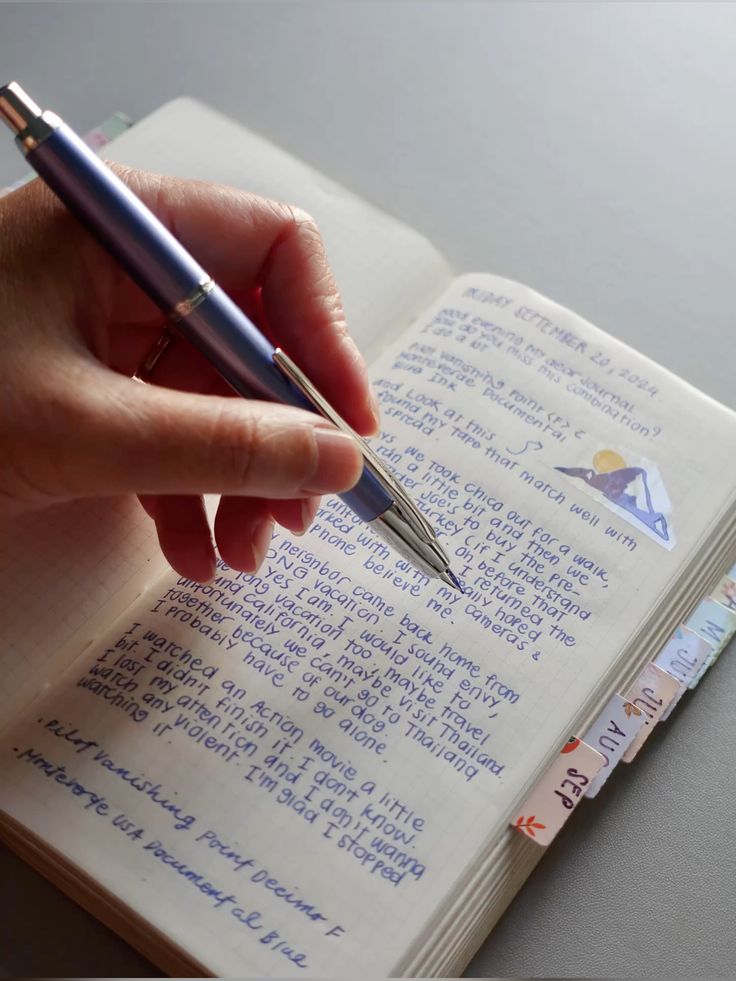 FRIDAY SEPTEMBER 20, 2024
Good evening my dear Journal.
How do you miss this combination?
I do a lot
Pilot Vanishing Point (F) &
Monteverde Documental
Blue Ink
and Look at this
found my tape that match well with
spread.
we took chico out for a walk,
ran a little bit and then we
Joe's to buy the pre-
Turkey (if I understand
Oh before that
I returned the
really hoped the
worked with me cameras &
phone believe me
neighbor came back home from
LONG vacation. I sound envy,
Yes I am. I would like to
long vacation too, maybe travel
around California, maybe visit Thailand.
unfortunately we can't go to Thailand
together because of our dog.
I probably have to go alone.
I watched an Action movie a little
bit. I didn't finish it. I don't know.
I lost my attention and I don't wanna
watch any violent. I'm glad I stopped
watching it.
• Pilot Vanishing Point Decimo F
• Monteverde USA Documental Blue
SEP
AUG
JUL
JU
M